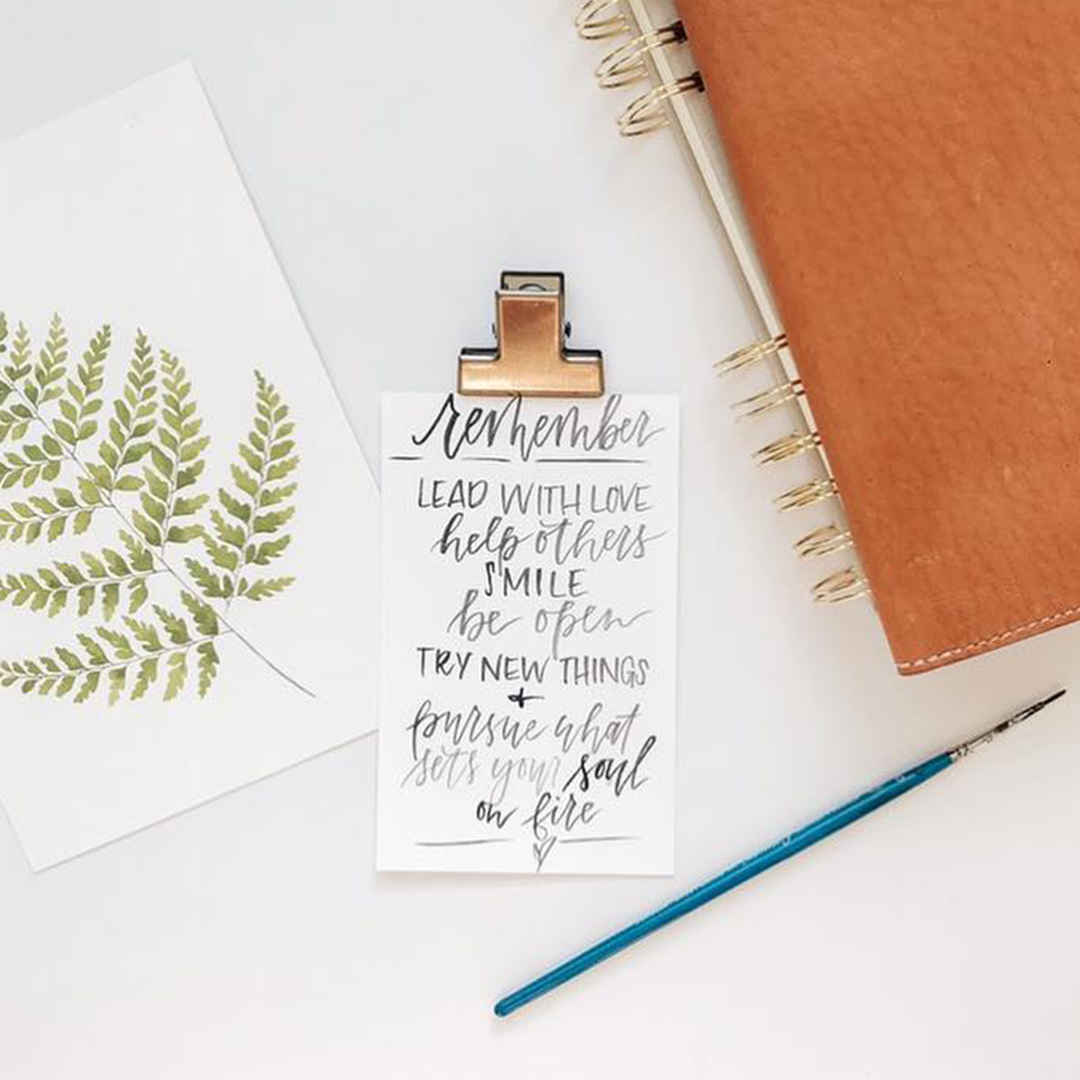 remember
LEAD WITH LOVE
help others
SMILE
be open
TRY NEW THINGS
+
pursue what
sets your soul
on fire